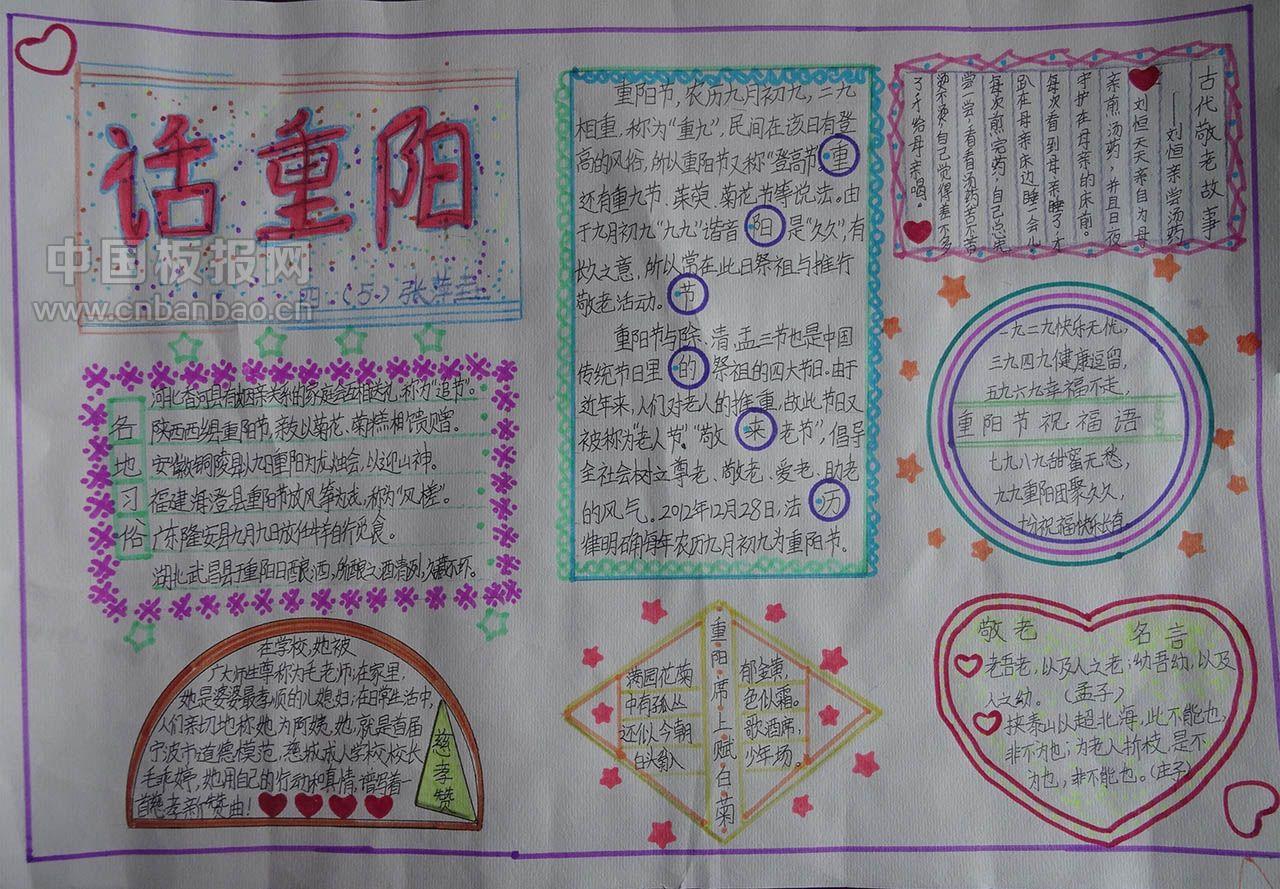 话重阳
中国板报网
www.cnbanbao.cn
四(5)张
各地习俗
河北香河县有姻亲关系的家庭会互相送礼,称为“追节”。
陕西西乡县重阳节,亲友以菊花、菊糕相馈赠。
安徽铜陵县以重阳为龙烛会,以迎山神。
福建海澄县重阳节放风筝为戏,称为“风槎”。
广东隆安县九月九日放任牛羊自行觅食。
湖北武昌县于重阳日酿酒,所酿之酒清冽,久藏不坏。
在学校,她被
广大师生尊称为毛老师;在家里,
她是婆婆最孝顺的儿媳妇;在日常生活中,
人们亲切地称她为阿姨。她,就是首届
宁波市道德模范,慈城成人学校校长
毛乖婷,她用自己的行动和真情,谱写着一
首慈孝新赞曲!
慈孝赞
重阳节,农历九月初九,二九
相重,称为“重九”,民间在该日有登
高的风俗,所以重阳节又称“登高节”。重
还有重九节、茱萸、菊花节等说法。由
于九月初九“九九”谐音阳是“久久”,有
长久之意,所以常在此日祭祖与推行
敬老活动。节
重阳节与除、清、盂三节也是中国
传统节日里的祭祖的四大节日。由于
近年来,人们对老人的推重,故此节日又
被称为“老人节”。“敬来老节”,倡导
全社会树立尊老、敬老、爱老、助老
的风气。2012年12月28日,法历
律明确每年农历九月初九为重阳节。
重阳席上赋白菊
满园花菊
郁金黄,
中有孤丛
色似霜。
还似今朝
歌酒席,
白头翁入
少年场。
古代敬老故事
——刘恒亲尝汤药
刘恒天天亲自为母
亲煎汤药,并且日夜
守护在母亲的床前。
每次看到母亲睡了,才
趴在母亲床边睡一会儿
每次煎完药,自己总先
尝一尝,看看汤药苦不苦
烫不烫,自己觉得差不多
了,才给母亲喝。
一九二九快乐无忧,
三九四九健康逗留,
五九六九幸福不走,
重阳节祝福语
七九八九甜蜜无愁,
九九重阳团聚久久,
祝福快乐长有。
敬老名言
老吾老,以及人之老;幼吾幼,以及
人之幼。(孟子)
挟泰山以超北海,此不能也,
非不为也;为老人折枝,是不
为也,非不能也。(庄子)